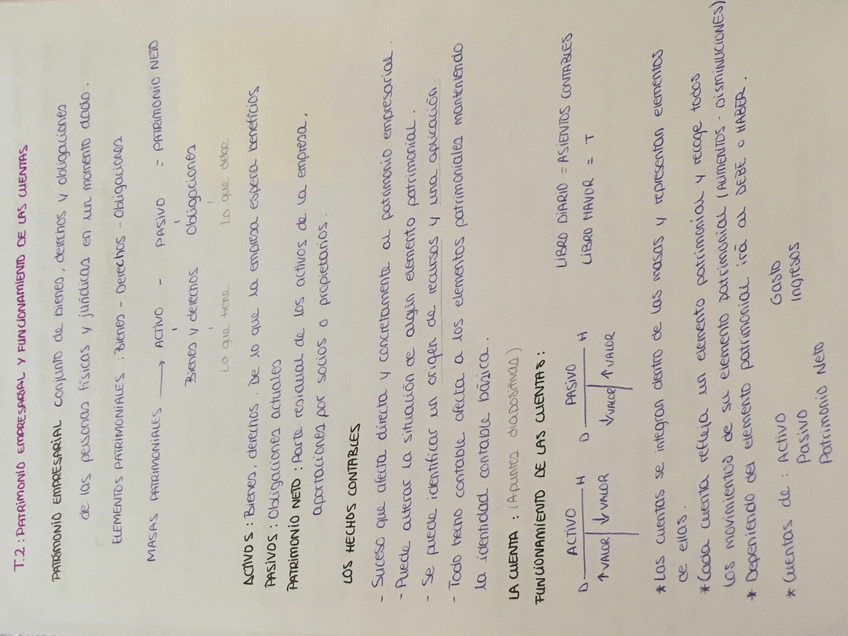 T.2: PATRIMONIO EMPRESARIAL Y FUNCIONAMIENTO DE LAS CUENTAS
PATRIMONIO EMPRESARIAL conjunto de bienes, derechos y obligaciones
de las personas físicas y jurídicas en un momento dado.
ELEMENTOS PATRIMONIALES: Bienes - Derechos - Obligaciones
MASAS PATRIMONIALES → ACTIVO - PASIVO = PATRIMONIO NETO
Bienes y derechos Obligaciones
Lo que tiene Lo que debe
ACTIVOS: Bienes, derechos. De lo que la empresa espera beneficios
PASIVOS: Obligaciones actuales
PATRIMONIO NETO: Parte residual de los activos de la empresa,
aportaciones por socios o propietarios.
LOS HECHOS CONTABLES
- Suceso que afecta directa y concretamente al patrimonio empresarial.
- Puede alterar la situación de algún elemento patrimonial.
- Se puede identificar un origen de recursos y una aplicación.
- Todo hecho contable afecta a los elementos patrimoniales manteniendo
la identidad contable básica.
LA CUENTA: (Apuntes diapositivas)
FUNCIONAMIENTO DE LAS CUENTAS:
LIBRO DIARIO = ASIENTOS CONTABLES
LIBRO MAYOR = T
D ACTIVO H D PASIVO H
↑VALOR ↓VALOR ↓VALOR ↑VALOR
* Las cuentas se integran dentro de las masas y representan elementos
de ellas.
* Cada cuenta refleja un elemento patrimonial y recoge todos
los movimientos de su elemento patrimonial (AUMENTOS - DISMINUCIONES)
* Dependiendo del elemento patrimonial irá al DEBE o HABER.
* Cuentas de: Activo Gasto
Pasivo Ingresos
Patrimonio Neto